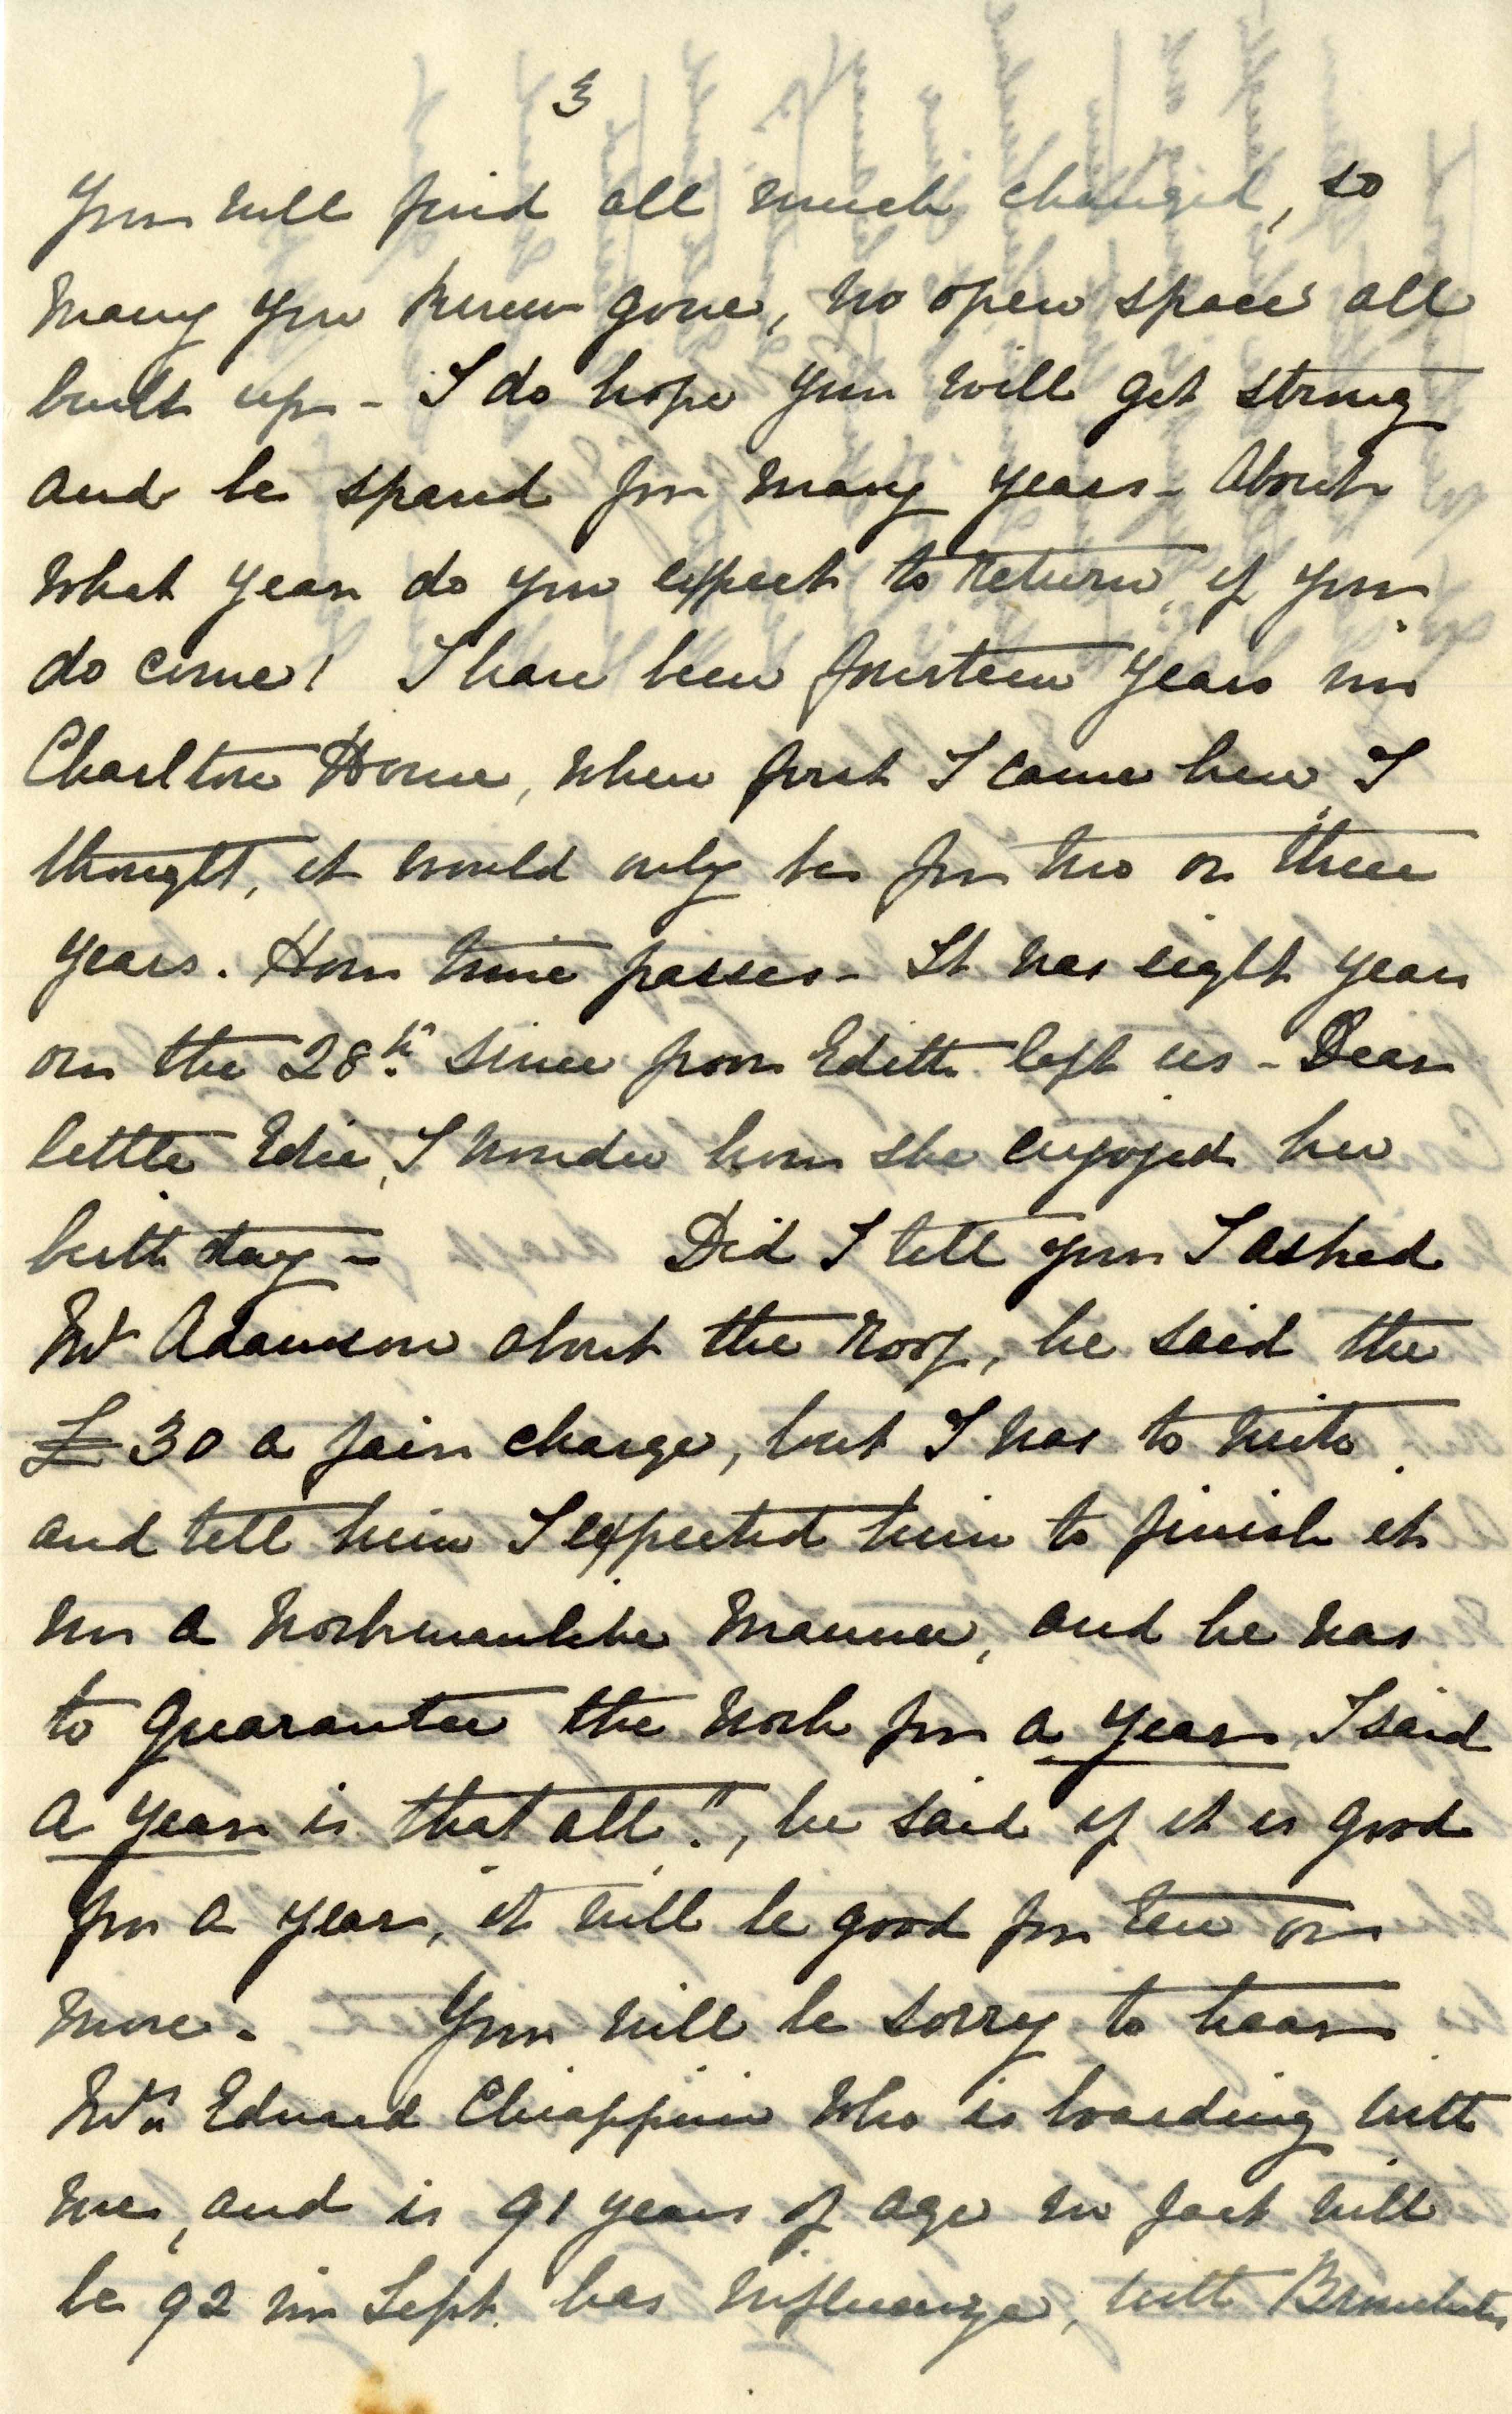 3
You will find all much changed, so
many you knew gone, no open space all
built up - I do hope you will get strong
and be spared for many years - About
what year do you expect to return, if you
do come! I have been fourteen years in
Charlton House, when first I came here, I
thought, it would only be for two or three
years. How time passes - It was eight years
on the 28th since poor Edith left us - Dear
little Edie, I wonder how she enjoyed her
birthday - Did I tell you I asked
Mr Adamson about the roof, he said the
£30 a fair charge, but I was to write
and tell him I expected him to finish it
in a workmanlike manner, and he was
to guarantee the work for a year, I said
a year is that all.", he said if it is good
for a year, it will be good for ten or
more. You will be sorry to hear
Mrs Edward Chiappini who is boarding with
me, and is 91 years of age in fact will
be 92 in Sept. has influenza, with Bronchitis